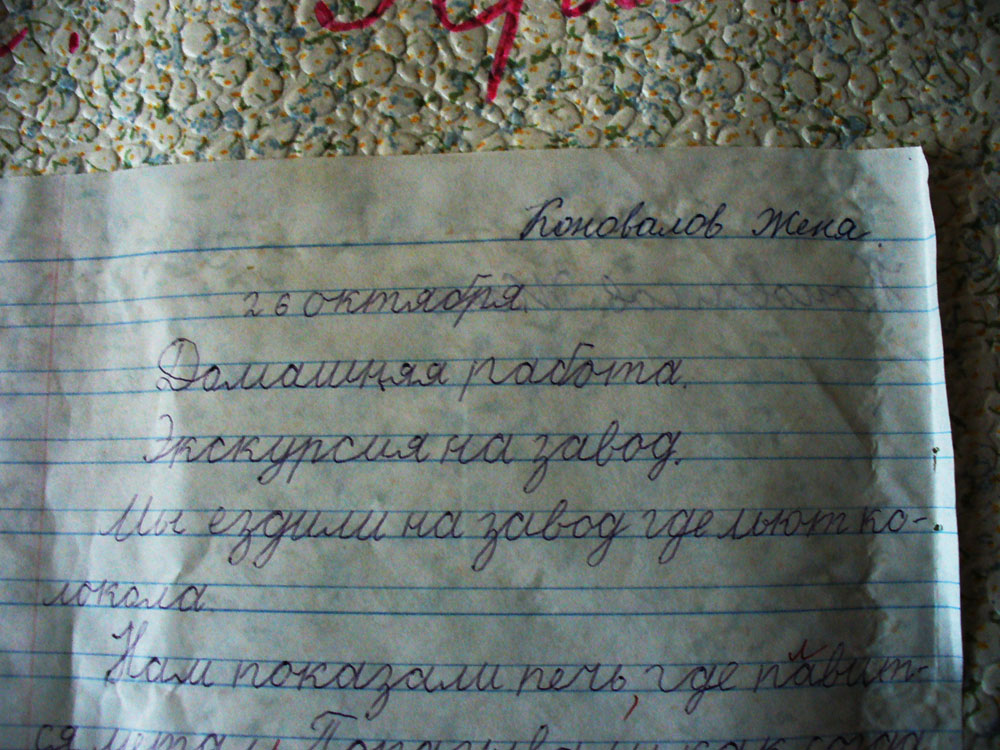 Коновалов Жена.
26 октября.
Домашняя работа.
Экскурсия на завод.
Мы ездили на завод где льют ко-
локола.
Нам показали печь, где плавит-
ся метал. Показывали как